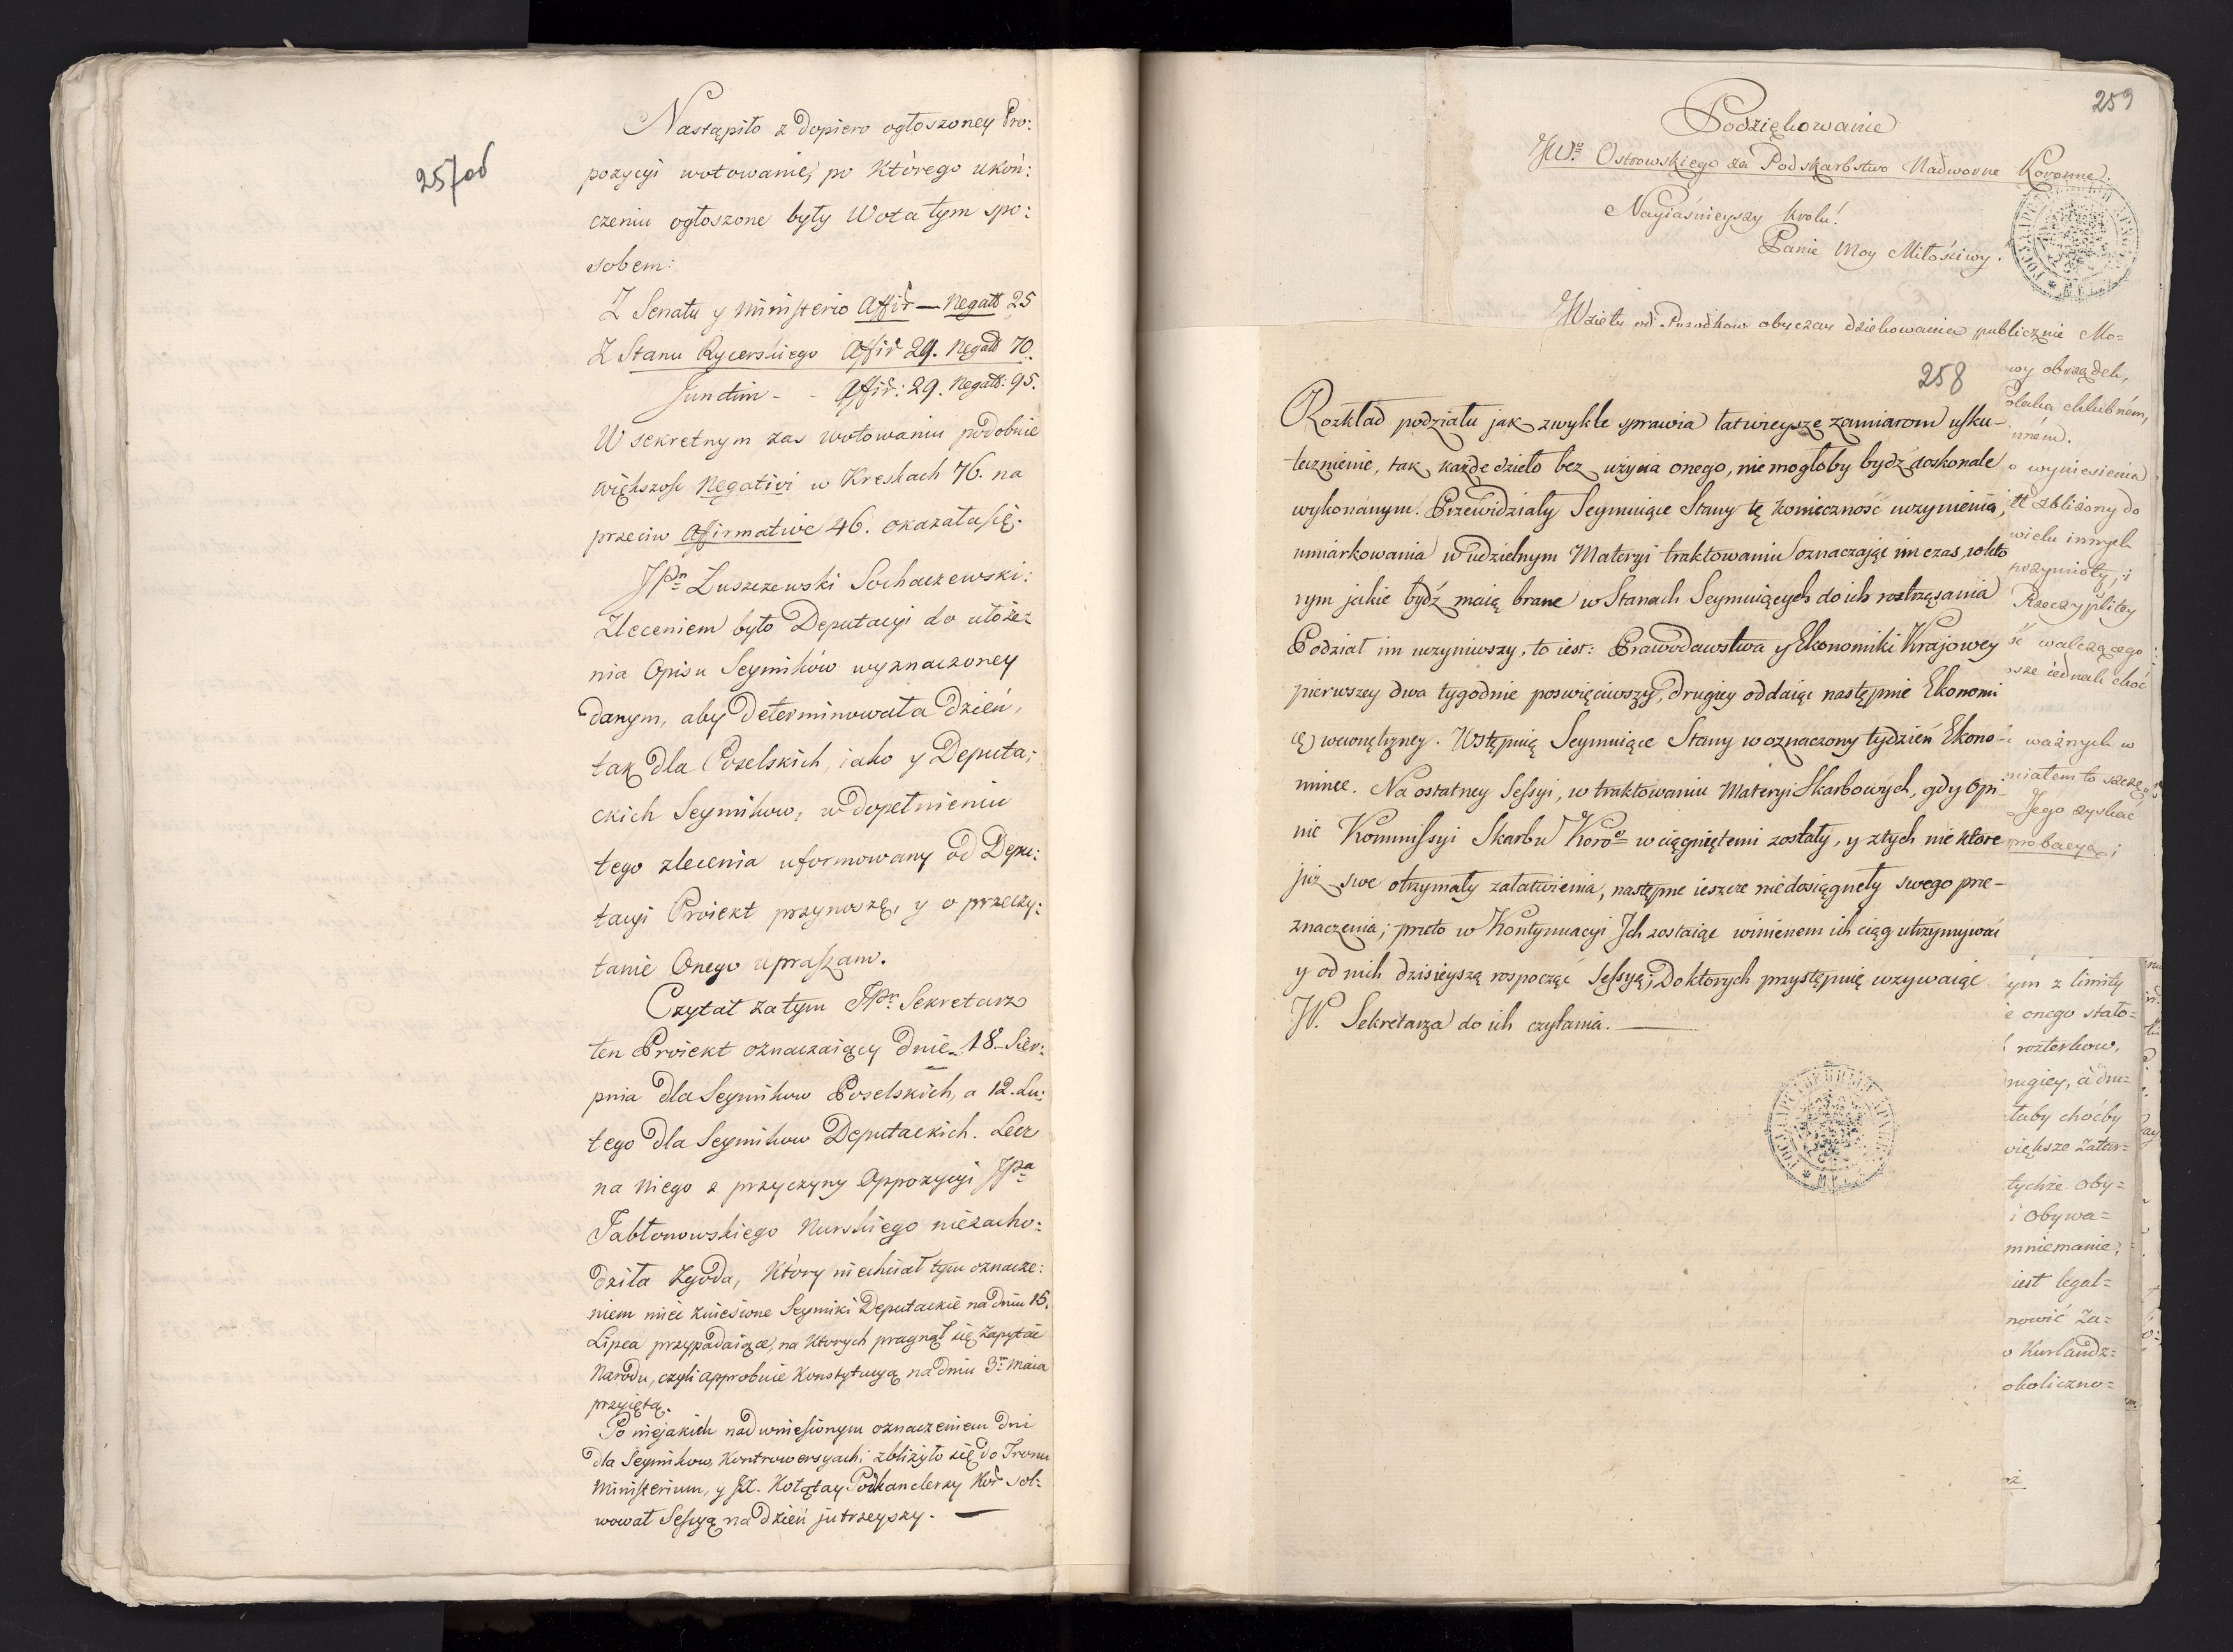 257об
Nastąpiło z dopiero ogłoszoney Pro:
pozycyi wotowanie, po Którego ukoń:
czeniu ogłoszone były Wota tym spo:
sobem:
Z Senatu y Ministerio Affir — Negatt 25
Z Stanu Rycerskiego Affir 29. Negatt 70.
Junctim - - Affir: 29. Negatt: 95.
W sekretnym zas wotowaniu podobnie
większość Negativi w Kreskach 76. na
przeciw Affirmative 46. okazała się.
JPn Łuszczewski Sochaczewski:
Zleceniem było Deputacyi do ułoże:
nia Opisu Seymików wyznaczoney
danym, aby determinowała dzień,
tak dla Poselskich, iako y Deputa:
ckich Seymikow, w dopełnieniu
tego zlecenia uformowany od Depu:
tacyi Proiekt przynoszę, y o przeczy:
tanie Onego upraszam.
Czytał zatym JPn Sekretarz
ten Proiekt oznaczaiący dnie 18. Sier:
pnia dla Seymikow Poselskich, a 12. Lu:
tego dla Seymikow Deputackich. Lecz
na niego z przyczyny Oppozycyi JPa
Jabłonowskiego Nurskiego niezacho:
dziła zgoda, Który niechciał tym oznacze:
niem mieć zniesione Seymiki Deputackie na dniu 15.
Lipca przypadaiące, na Których pragnął się zapytać
Narodu, czyli approbuie Konstytucyą na dniu 3m Maia
przyiętą.
Po niejakich nad wniesionym oznaczeniem dni
dla Seymikow, Kontrowersyach, zbliżyło się do Tronu
Ministerium, y JX. Kołątay Podkanclerzy Kor sol:
wował Sessyą na dzień jutrzeyszy. —
259
Podziękowanie
JWo Ostrowskiego za Podskarbstwo Nadworne Koronne.
Nayiaśnieyszy Krolu!
Panie Moy Miłościwy.
Wzięty od Przodkow obyczay dziękowania publicznie Mo=
wy obrządek,
olaka chlubném,
inném.
o wyniesienia
tt zbliżony do
wielu innych
przymioty, i
Rzeczyplitey
ść walczącego
sze iednak choć
ważnych w
miałem to szczę
Jego zyskać
probacyą i
258
Rozkład podziału jak zwykle sprawia łatwieysze zamiarom usku-
tecznienie, tak każde dzieło bez użycia onego, niemogłoby bydź doskonale
wykonanym. Przewidziały Seymuiące Stany tę konieczność uczynienia,
umiarkowania w udzielnym Materyi traktowaniu oznaczając im czas, w kto
rym jakie bydź maią brane w Stanach Seymuiących do ich roztrząsania
Podział im uczyniwszy, to iest: Prawodawstwa y Ekonomiki Krajowey
pierwszey dwa tygodnie poswięciwszy, drugiey oddaiąc następnie Ekonomi
ię) wewnętrzney. Wstępuią Seymuiące Stany w oznaczony tydzień Ekono-
mice. Na ostatney Sessyi, w traktowaniu Materyi Skarbowych, gdy Opi-
nie Kommissyi Skarbu Koro wciągniętemi zostały, y z tych nie które
już swe otrzymały załatwienia, następne ieszcze niedosiągneły swego prze-
znaczenia; przeto w Kontynuacyi Jch zostaiąc winienem ich ciąg utrzymywać
y od nich dzisieyszą rospocząć Sessyą; Do ktorych przystępuię wzywaiąc
W. Sekretarza do ich czytania. —
ym z limity
e onego stało=
rozterkow,
rugiey, à dru=
łuby choćby
większe zatar=
tychże oby=
i Obywa=
mniemanie;
iest legal=
nowić Za=
o Kurlandz=
okoliczno=